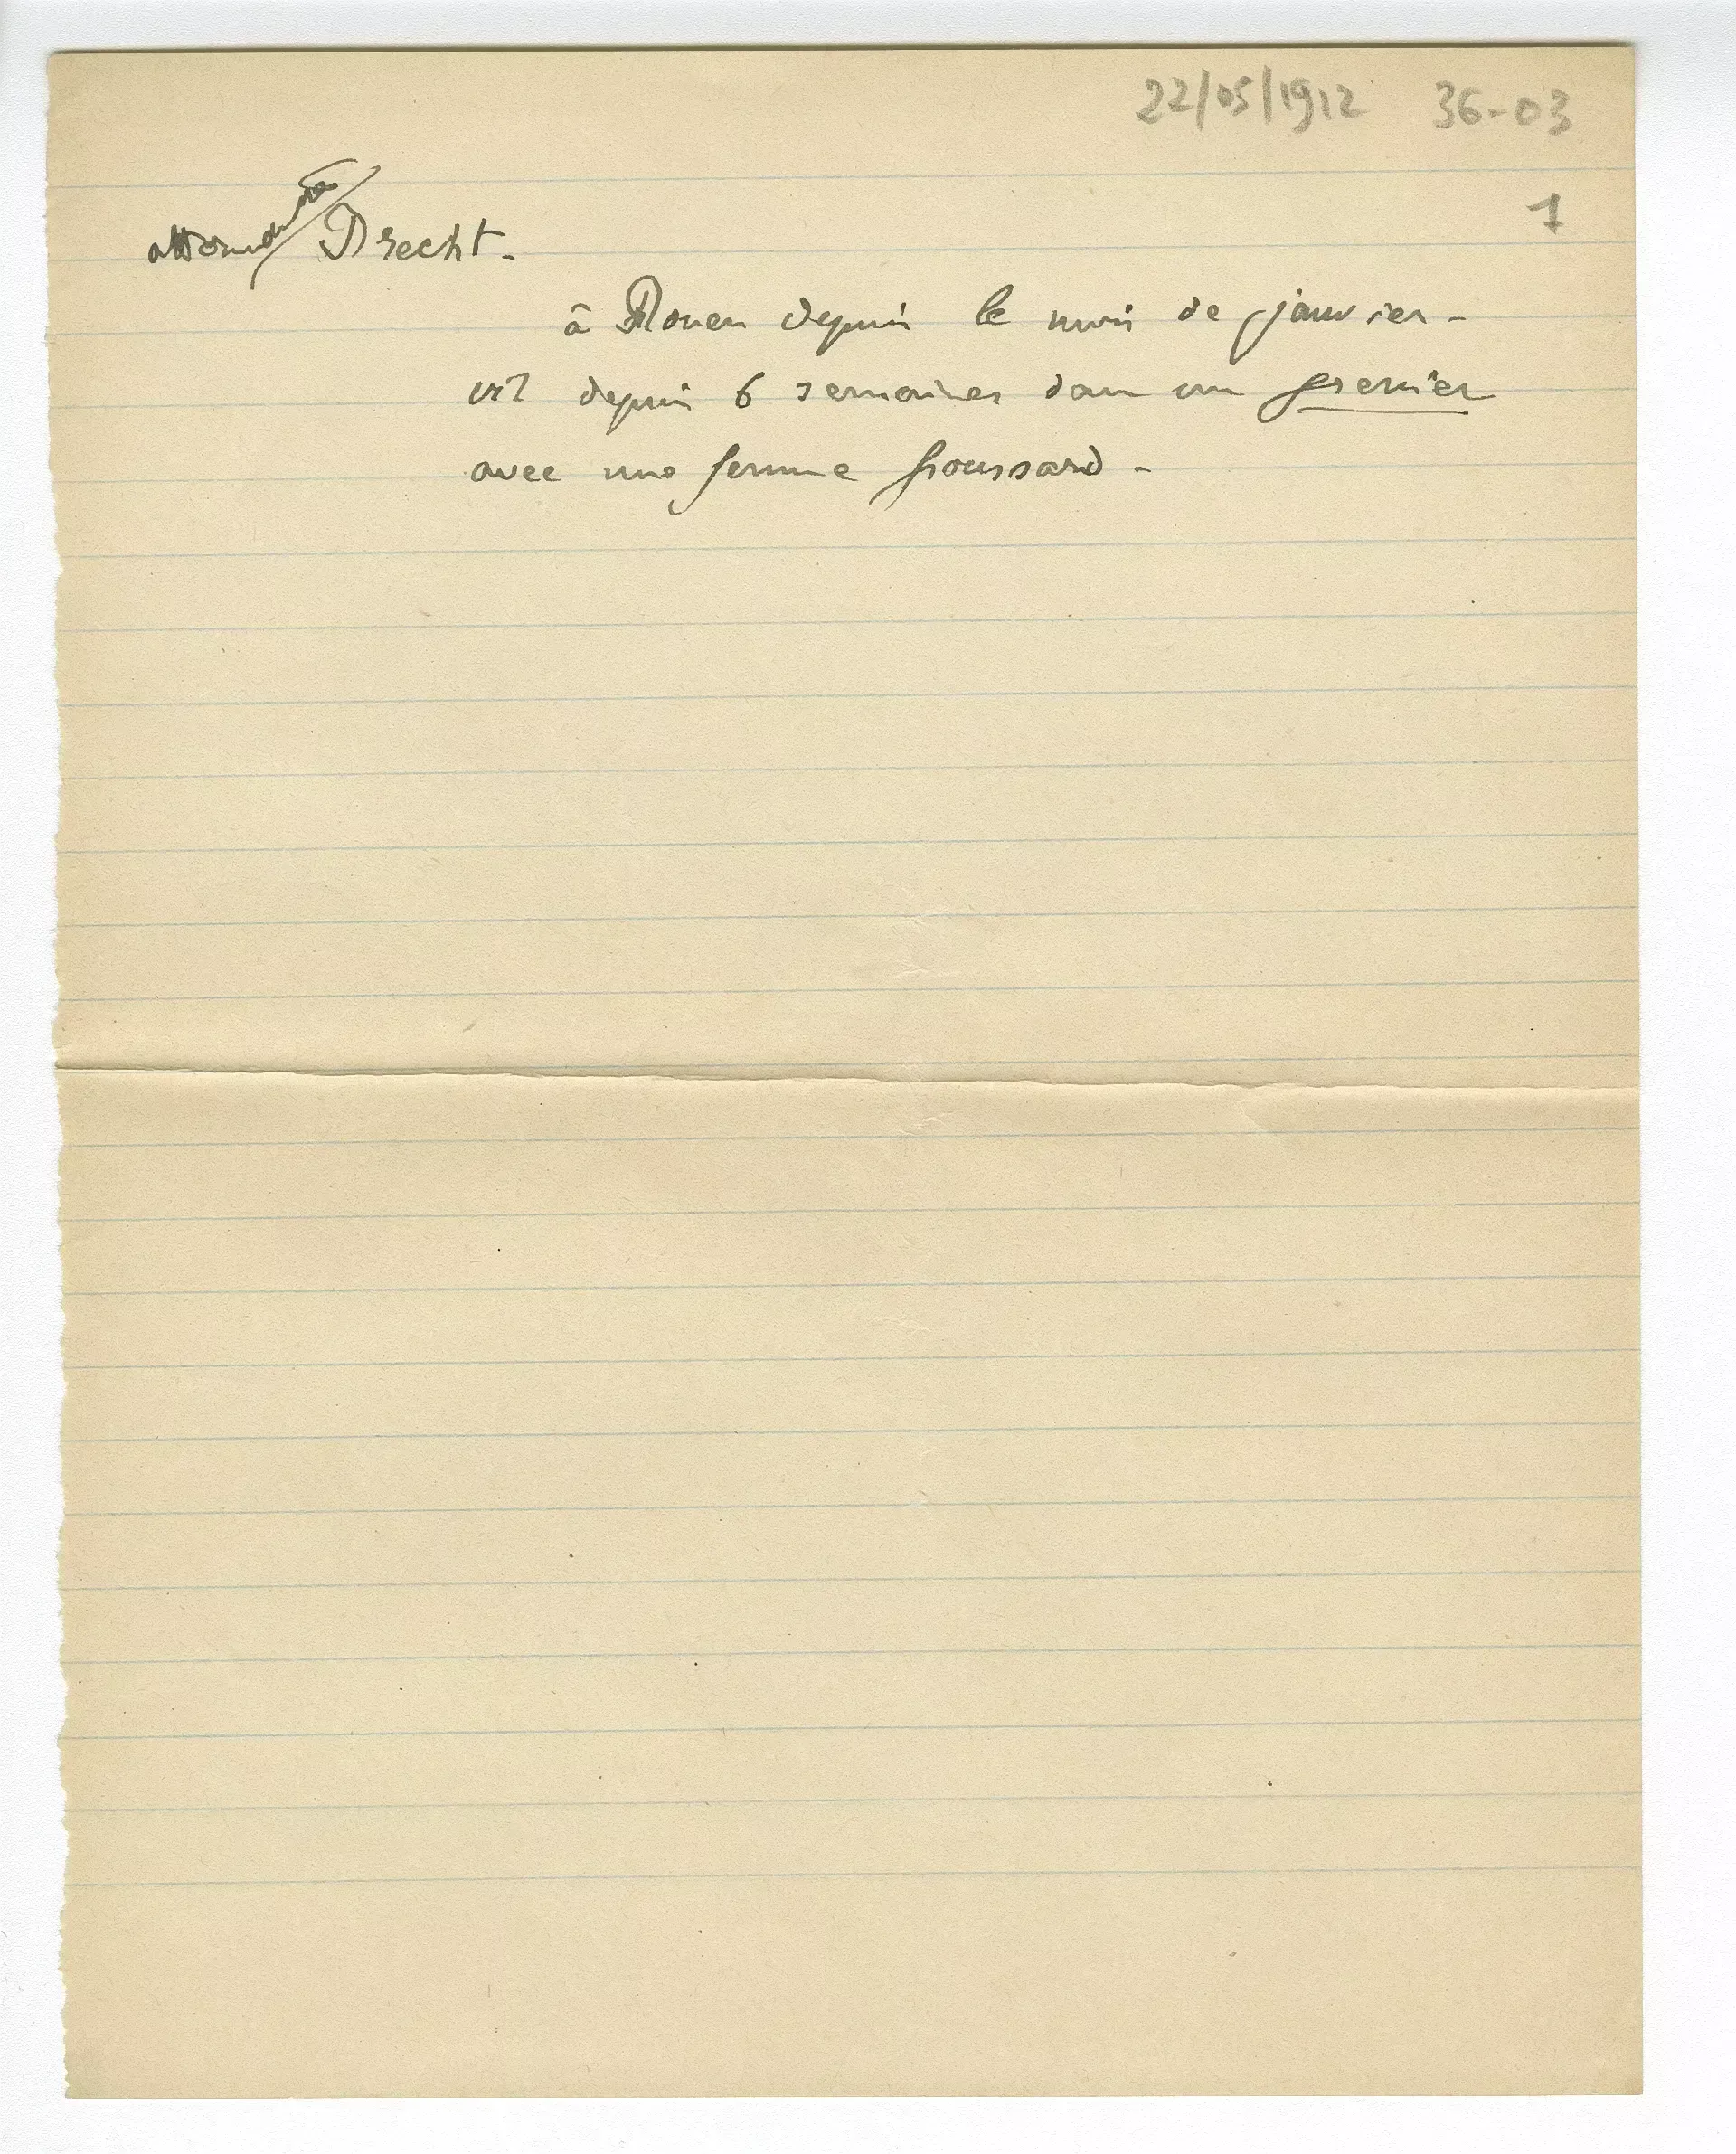 22/05/1912 36-03
1
Drecht.
à Rouen depuis le mois de janvier -
vit depuis 6 semaines dans un grenier
avec une femme